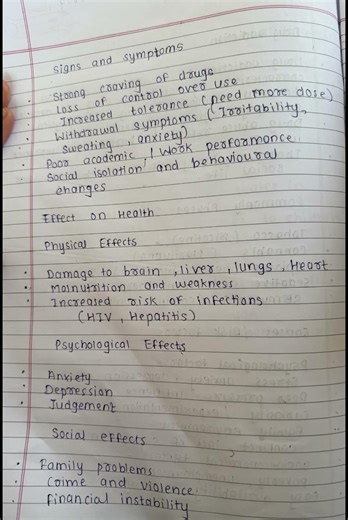 Signs and symptoms
• Strong craving of drugs
• Loss of control over use
• Increased tolerance (need more dose)
• Withdrawal symptoms (Irritability,
Sweating, anxiety)
• Poor academic / Work performance
• Social isolation and behavioural
changes
Effect on Health
Physical Effects
• Damage to brain, liver, lungs, Heart
• Malnutrition and weakness
• Increased risk of infections
(HIV, Hepatitis)
Psychological Effects
• Anxiety
• Depression
• Judgement
Social effects
• Family problems
• Crime and violence
• financial instability